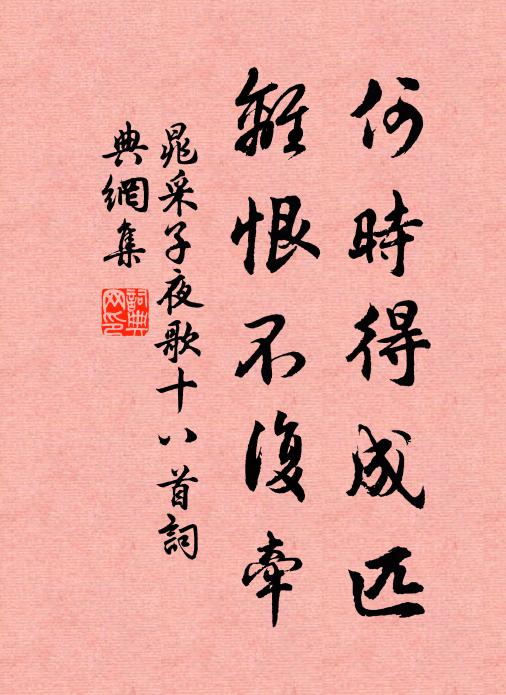 何時得成匹
離恨不復牽
晁采子夜歌十八首詞
典網集
詞典网印